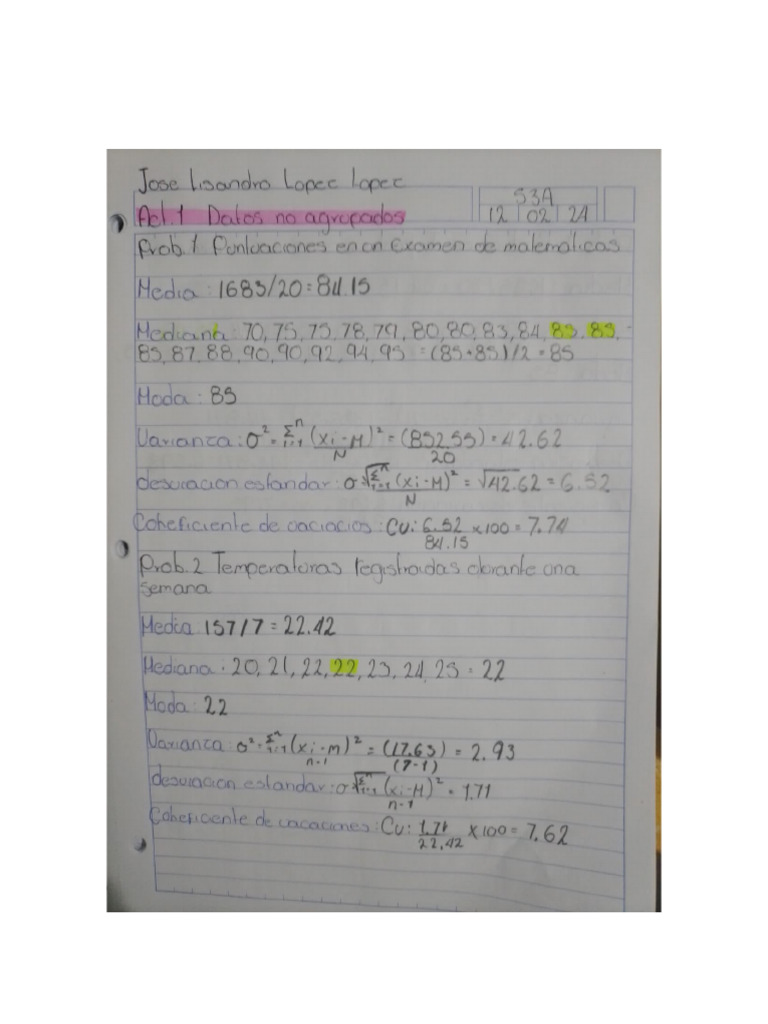 Jose Lisandro Lopec Lopec
S3A
Act.1 Datos no agrupados
12 | 02 | 24
Prob.1 Puntuaciones en un Examen de matematicas
Media : 1683/20 = 84.15
Mediana : 70, 75, 75, 78, 79, 80, 80, 83, 84, 85, 85,
85, 87, 88, 90, 90, 92, 94, 95 = (85+85)/2 = 85
Moda : 85
Varianza : σ² = Σⁿᵢ₌₁ (xi-M)²/N = (852.55)/20 = 42.62
desviacion estandar : σ √Σⁿᵢ₌₁ (xi-M)²/N = √42.62 = 6.52
Coheficiente de : Cv: 6.52/84.15 x100 = 7.74
Prob.2 Temperaturas registradas durante una
semana
Media 157/7 = 22.42
Mediana : 20, 21, 22, 22, 23, 24, 25 = 22
Moda : 22
Varianza : σ² = Σⁿᵢ₌₁ (xi-M)²/n-1 = (17.63)/(7-1) = 2.93
desviacion estandar : σ √Σⁿᵢ₌₁ (xi-M)²/n-1 = 1.71
Coheficiente de : Cv: 1.71/22.42 x100 = 7.62